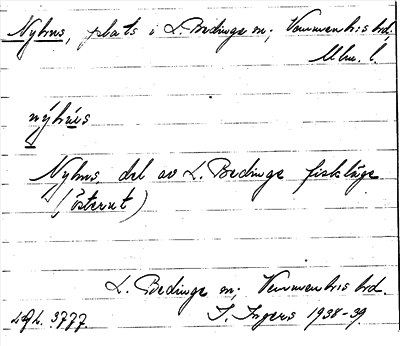 Nyhus, plats i L. Bedinge sn; Vemmenhös hd.
Mlm. l.
nýhùs
Nyhus del av L. Bedinge fiskläge
(österut)
L. Bedinge sn; Vemmenhös hd.
I. Ingers 1938-39.
3777.